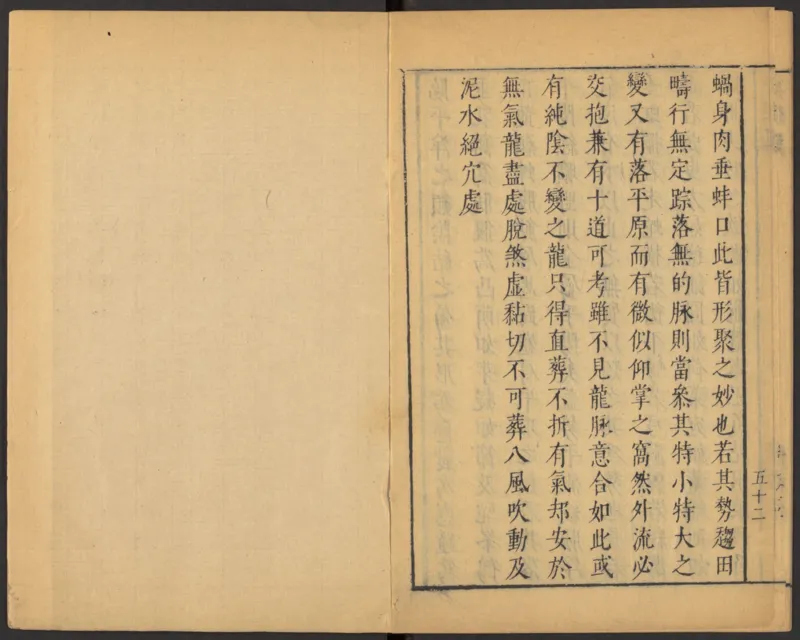 蝸身肉垂蚌口此皆形聚之妙也若其勢趨田
疇行無定踪落無的脉則當叅其特小特大之
變又有落平原而有微似仰掌之窩然外流必
交抱兼有十道可考雖不見龍脉意合如此或
有純陰不變之龍只得直葬不折有氣却安於
無氣龍盡處脫煞虛黏切不可葬八風吹動及
泥水絕穴處
五十二